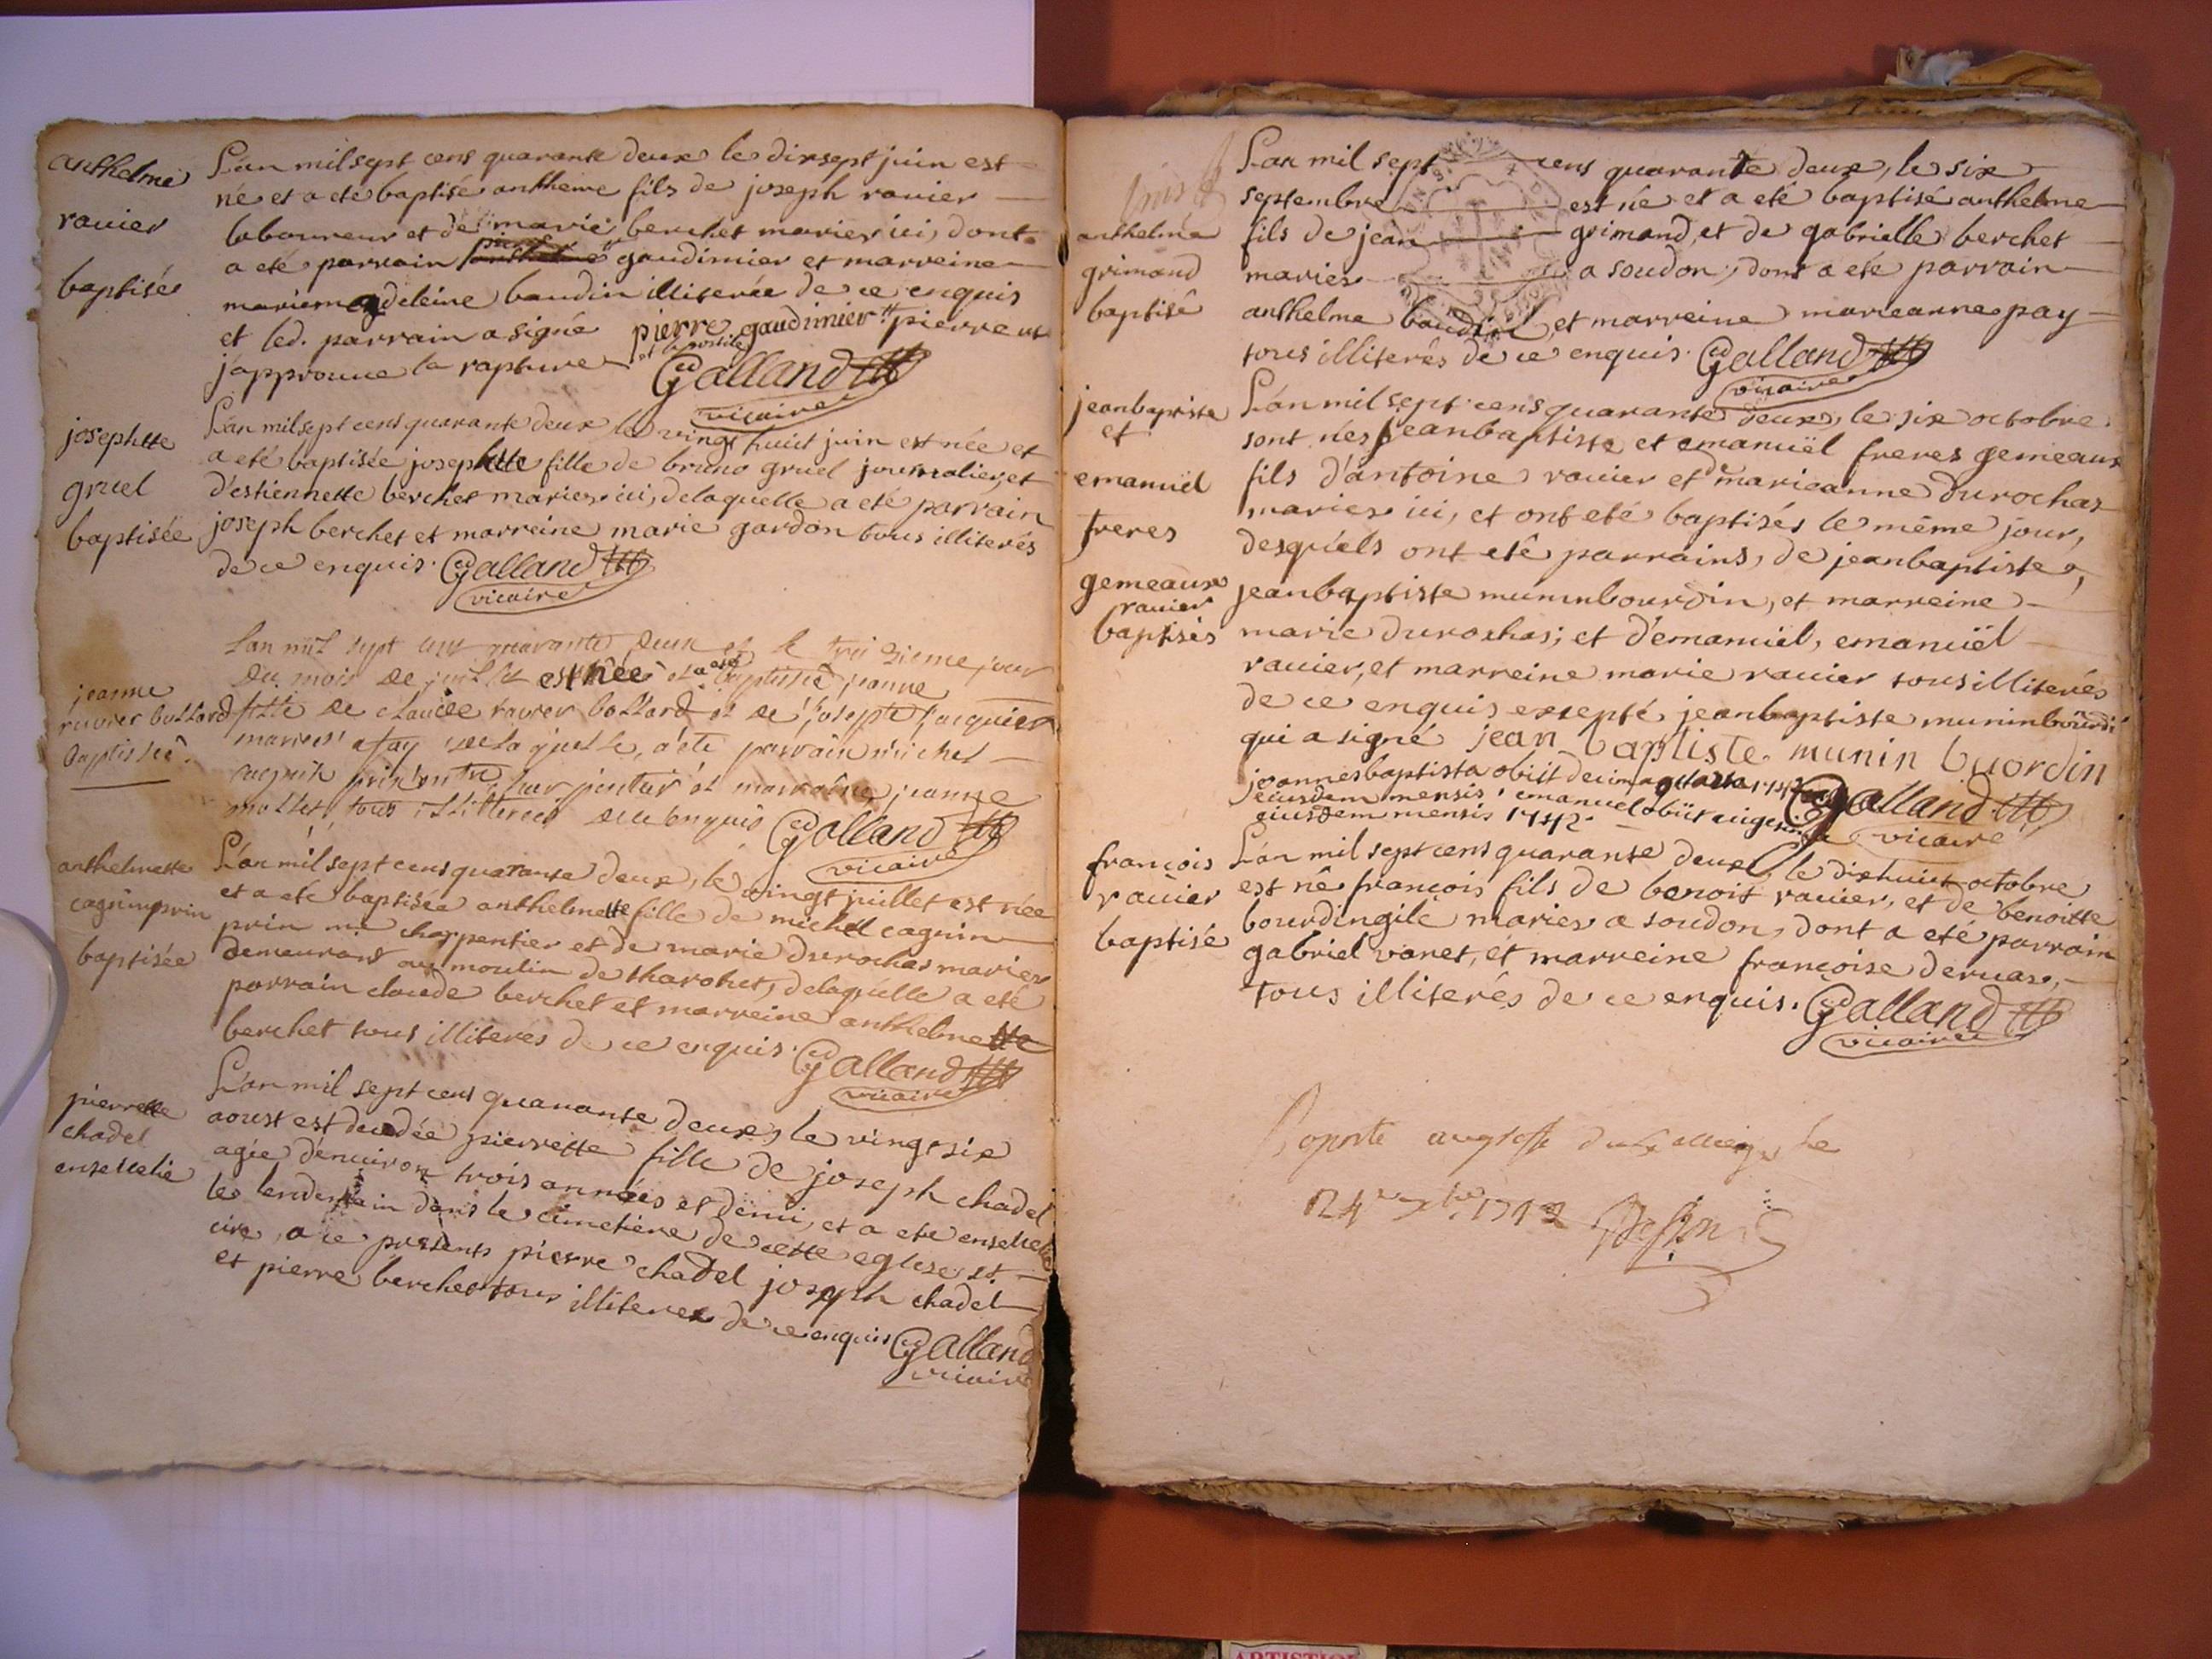 anthelme
ravier
baptisée
L'an mil sept cens quarante deux le dixsept juin est
né et a eté baptisé anthelme fils de joseph ravier
laboureur et de marie berchet mariés ici, dont
a eté parrain pierre gaudimier et marreine
mariemagdeleine baudin illiterée de ce enquis
et led. parrain a signé pierre gaudimier pierre
et l'apostile
j'approuve la rapture Galland
vicaire
josephtte
gruel
baptisée
L'an mil sept cens quarante deux le vingt huict juin est née et
a eté baptisée josephtte fille de bruno gruel journalier, et
d'estiennette berchet mariés ici, delaquelle a eté parrain
joseph berchet et marreine marie gardon tous illiterés
de ce enquis. Galland
vicaire
jeanne
ravier bollard
baptissée
Lan mil sept cens quarante deux et le treizieme jour
du mois de juillet est née et a été baptissée jeanne
fille de claude ravier bollard et de josepte jacquier
mariés a fay de laquelle, a été parrain michel
cagnin prin charpentier et marraine jeanne
mollet tous illitterés de ce enquis Galland
vicaire
anthelmette
cagninprin
baptisée
L'an mil sept cens quarante deux, le vingt juillet est née
et a eté baptisée anthelmette fille de michel cagnin
prin me charpentier et de marie durochas mariés
demeurant au moulin de tharohet, delaquelle a eté
parrain claude berchet et marreine anthelmette
berchet tous illiteres de ce enquis. Galland
vicaire
pierrette
chadel
ensevelie
L'an mil sept cens quarante deux, le vingt six
aoust est decedée pierrette fille de joseph chadel
agée d'environ trois années et demi, et a eté ensevelie
le lendemain dans le cimetière de cette eglise st
cire, a ce presents pierre chadel joseph chadel
et pierre berchet tous illiteres de ce enquis Galland
vicaire
L'an mil sept cens quarante deux, le six
septembre est né et a eté baptisé anthelme
anthelme
grimand
baptisé
fils de jean grimand, et de gabrielle berchet
mariés a soudon, dont a eté parrain
anthelme baudin, et marreine marieanne pay
tous illiterés de ce enquis. Galland
vicaire
jeanbaptiste
et
emanuël
freres
gemeaux
ravier
baptisés
L'an mil sept cens quarante deux, le six octobre
sont nés jeanbaptiste et emanuël freres gemeaux
fils d'antoine ravier et de marieanne durochas
mariés ici, et ont eté baptisés le même jour,
desquels ont eté parrains, de jeanbaptiste,
jeanbaptiste muninbourdin, et marreine
marie durochas; et d'emanuël, emanuël
ravier, et marreine marie ravier tous illiterés
de ce enquis excepté jeanbaptiste muninbourdi
qui a signé jean baptiste munin buordin
joannesbaptista obiit decimaquarta
eiusdem mensis, emanuel obiit
eiusdem mensis 1742. Galland
vicaire
françois
ravier
baptisé
L'an mil sept cens quarante deux, le dixhuict octobre
est né françois fils de benoit ravier, et de benoitte
bourdingile mariés a soudon, dont a eté parrain
gabriel vanet, et marreine françoise dervas,
tous illiterés de ce enquis. Galland
vicaire